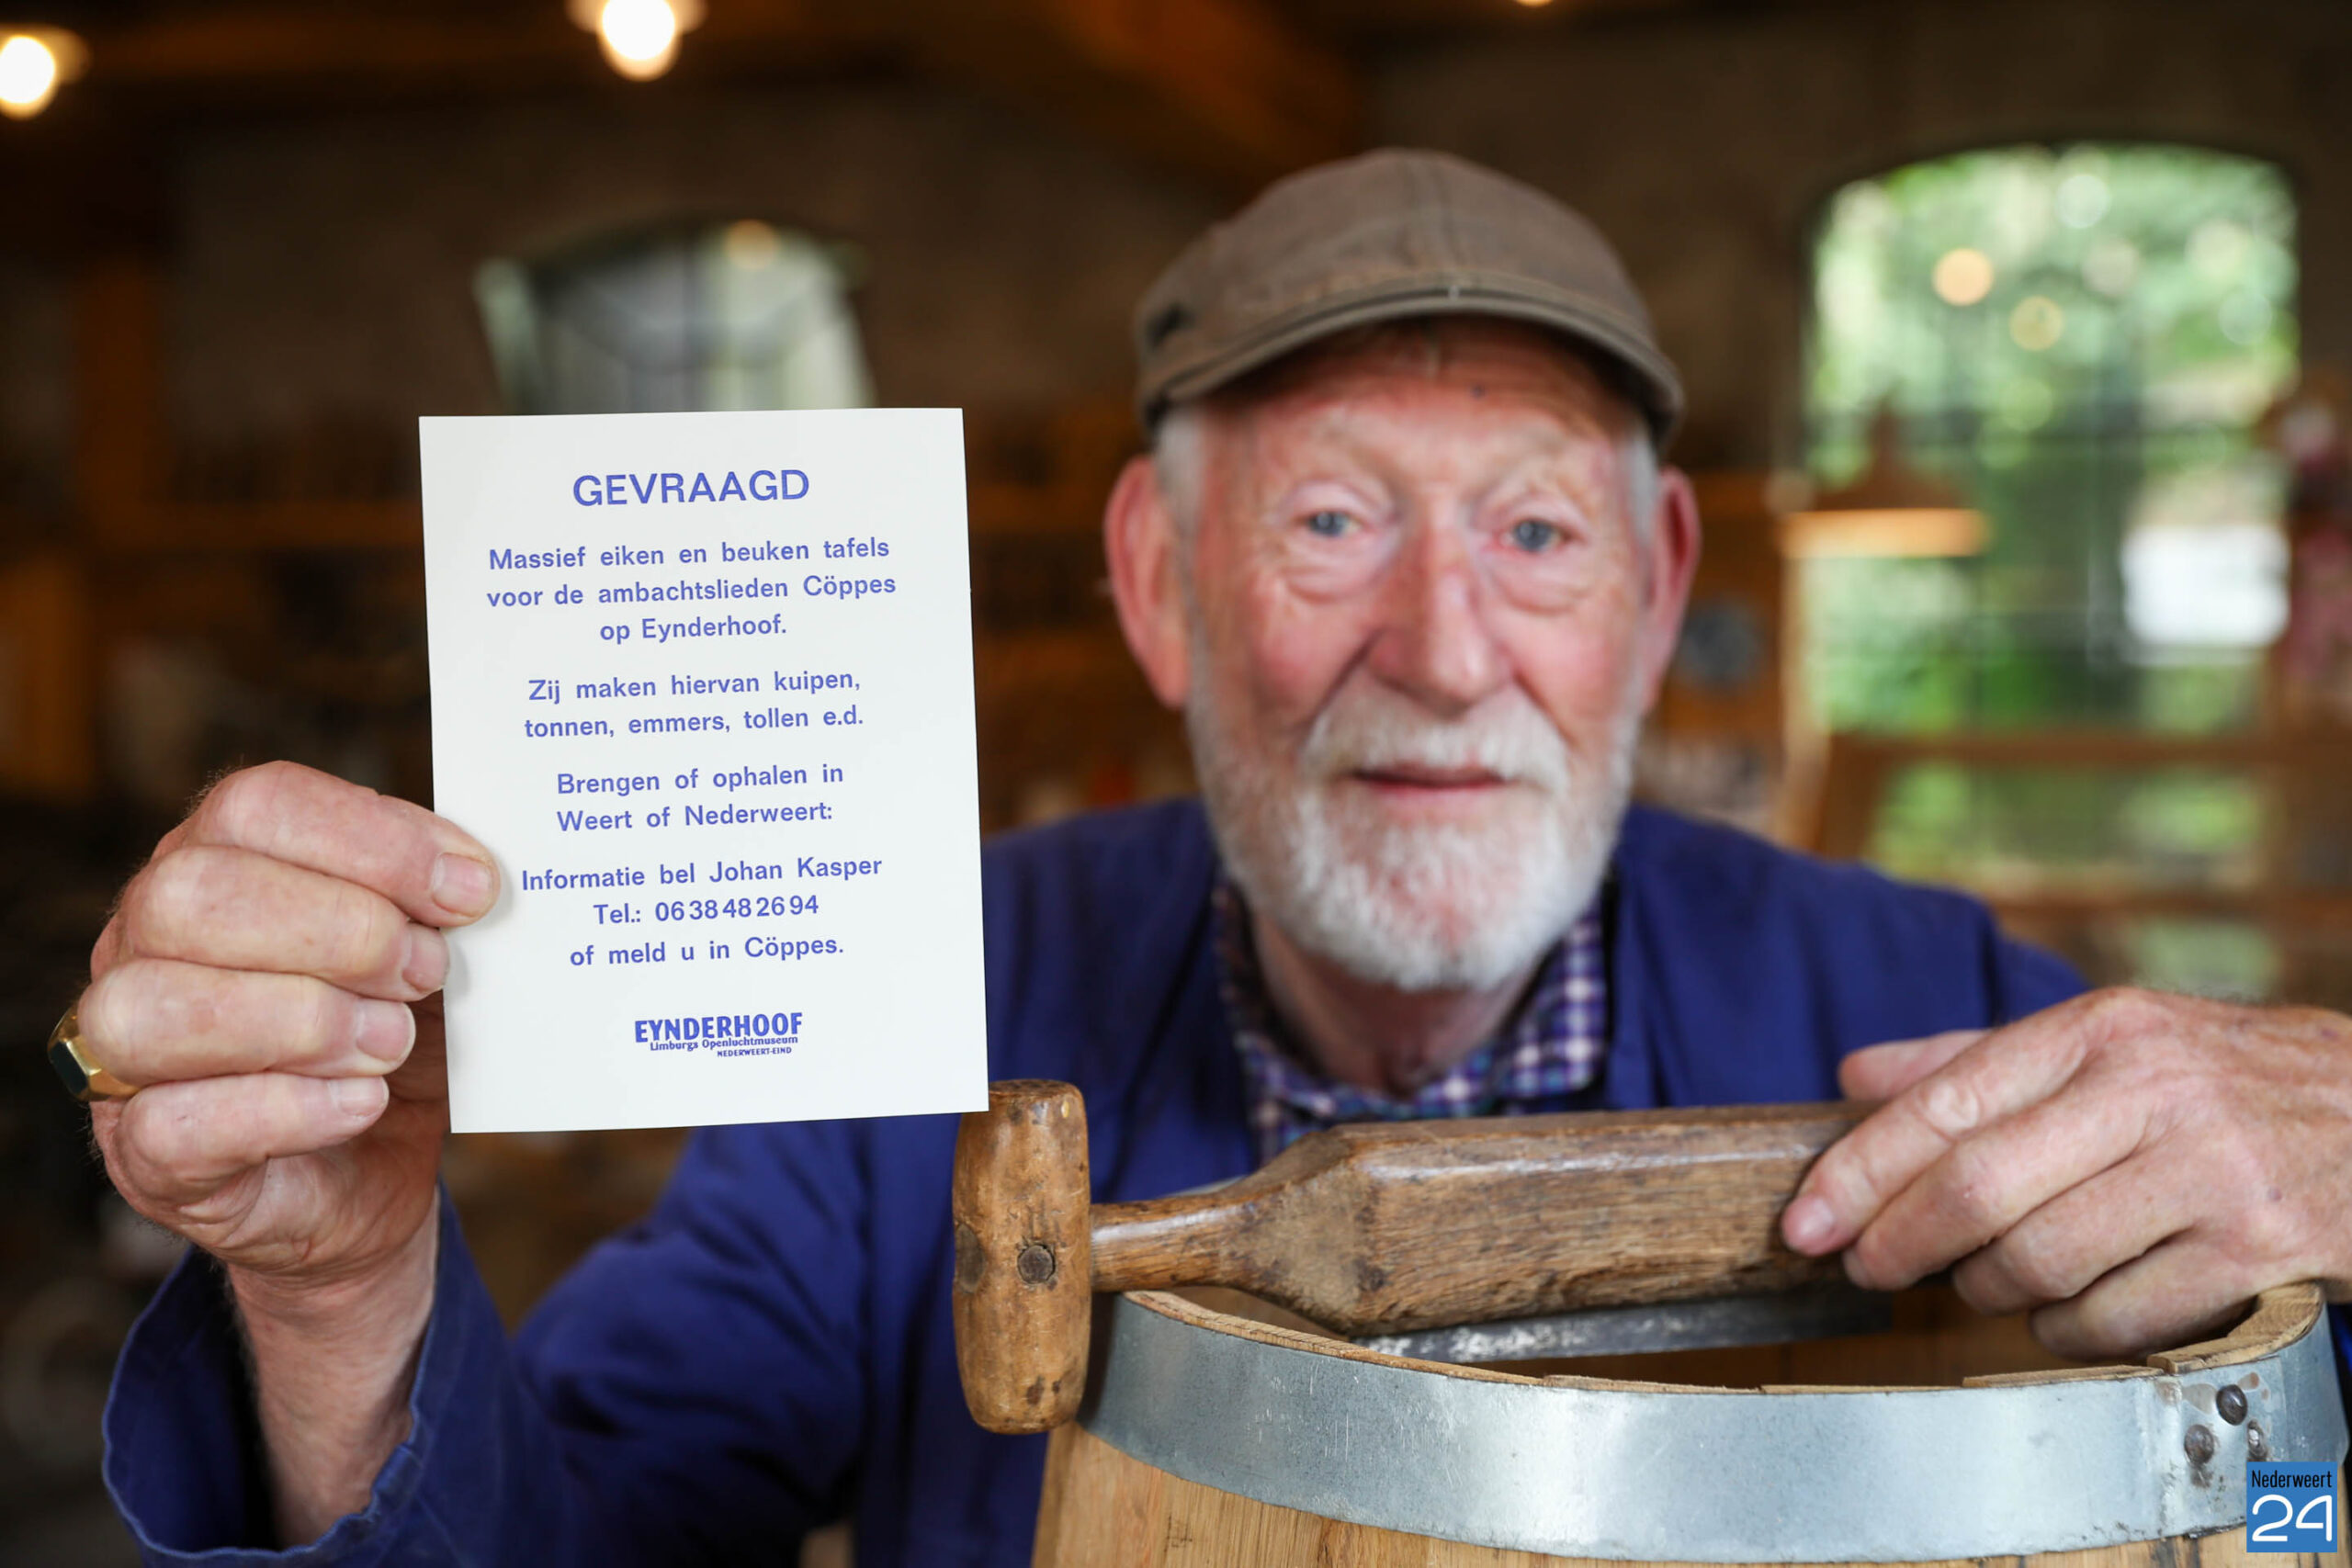 GEVRAAGD
Massief eiken en beuken tafels
voor de ambachtslieden Cöppes
op Eynderhoof.
Zij maken hiervan kuipen,
tonnen, emmers, tollen e.d.
Brengen of ophalen in
Weert of Nederweert:
Informatie bel Johan Kasper
Tel.: 06 38 48 26 94
of meld u in Cöppes.
EYNDERHOOF
Limburgs Openluchtmuseum
NEDERWEERT-EIND
Nederweert
24